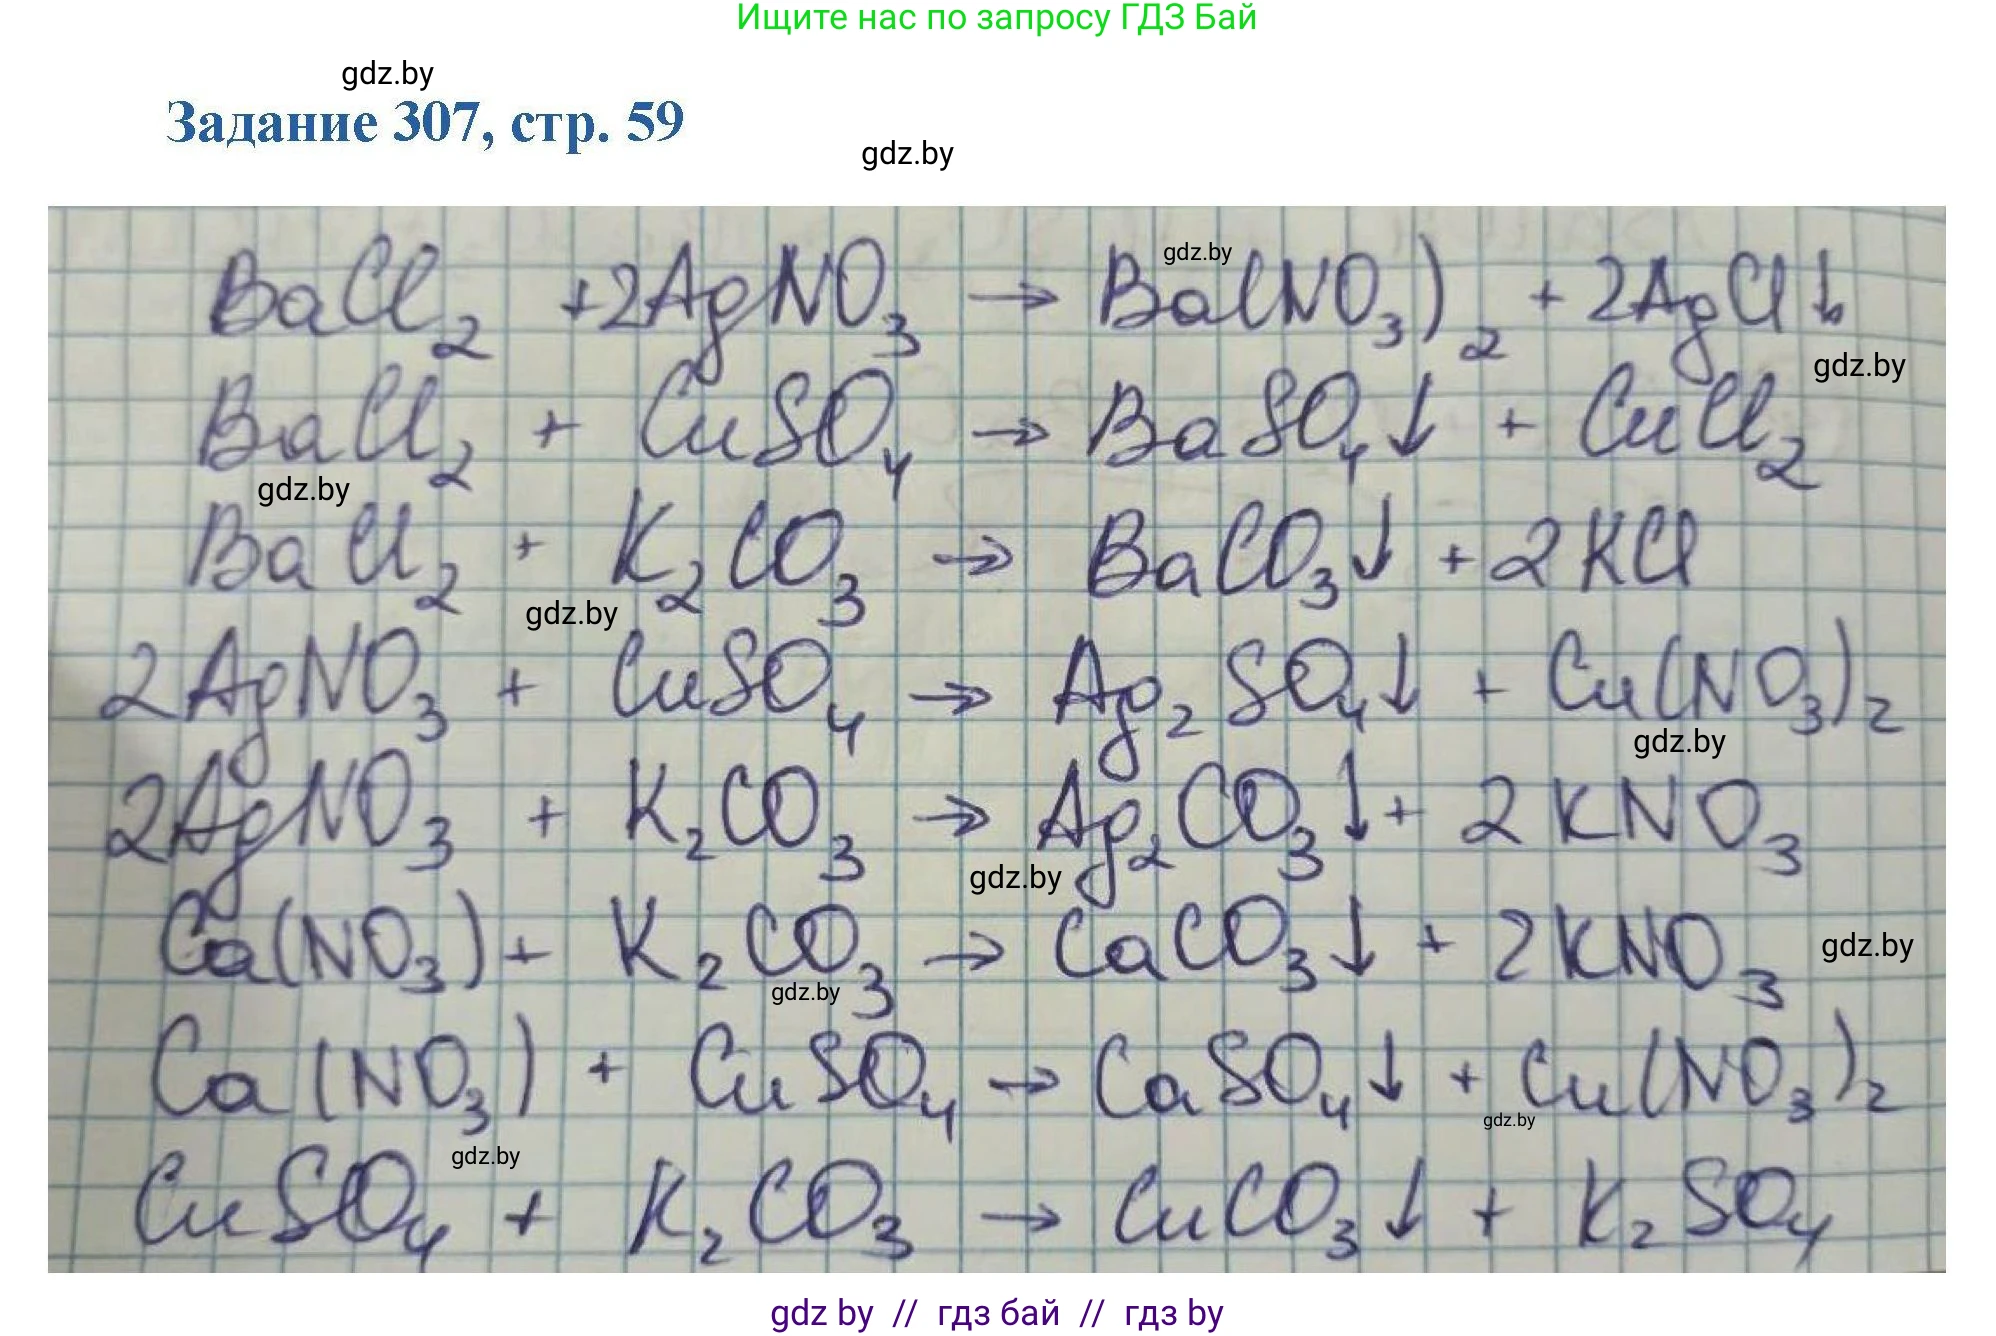 Ищите нас по запросу ГДЗ Бай
gdz.by
Задание 307, стр. 59
gdz.by
BaCl₂ +2AgNO₃ → Ba(NO₃)₂ + 2AgCl↓
gdz.by
gdz.by
BaCl₂ + CuSO₄ → BaSO₄↓ + CuCl₂
gdz.by
BaCl₂ + K₂CO₃ → BaCO₃↓ + 2KCl
gdz.by
2AgNO₃ + CuSO₄ → Ag₂SO₄↓ + Cu(NO₃)₂
gdz.by
2AgNO₃ + K₂CO₃ → Ag₂CO₃↓ + 2KNO₃
gdz.by
Ca(NO₃) + K₂CO₃ → CaCO₃↓ + 2KNO₃
gdz.by
gdz.by
Ca(NO₃) + CuSO₄ → CaSO₄↓ + Cu(NO₃)₂
gdz.by
gdz.by
CuSO₄ + K₂CO₃ → CuCO₃↓ + K₂SO₄
gdz by // гдз бай // гдз by